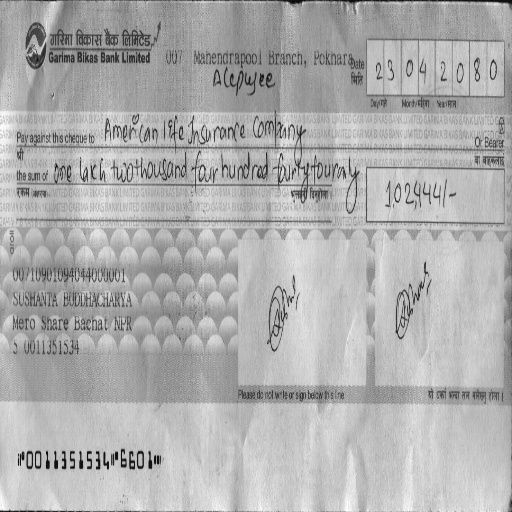 गरिमा विकास बैंक लिमिटेड
Garima Bikas Bank Limited
007 Mahendrapool Branch, Pokhara
A/c payee
Date
मिति
23 04 2080
Day/गते Month/महिना Year/साल
Pay against this cheque to American life Insurance Company
Or Bearer
श्री
वा वाहकलाई
the sum of one lakh two thousand four hundred fourty four only
रकम अक्षरुपी
1,02,444/-
00710901094044000001
SUSHANTA BUDDHACHARYA
Mero Share Bachat NPR
5 0011351534
Please do not write or sign below this line
⑈0011351534⑈6601⑈